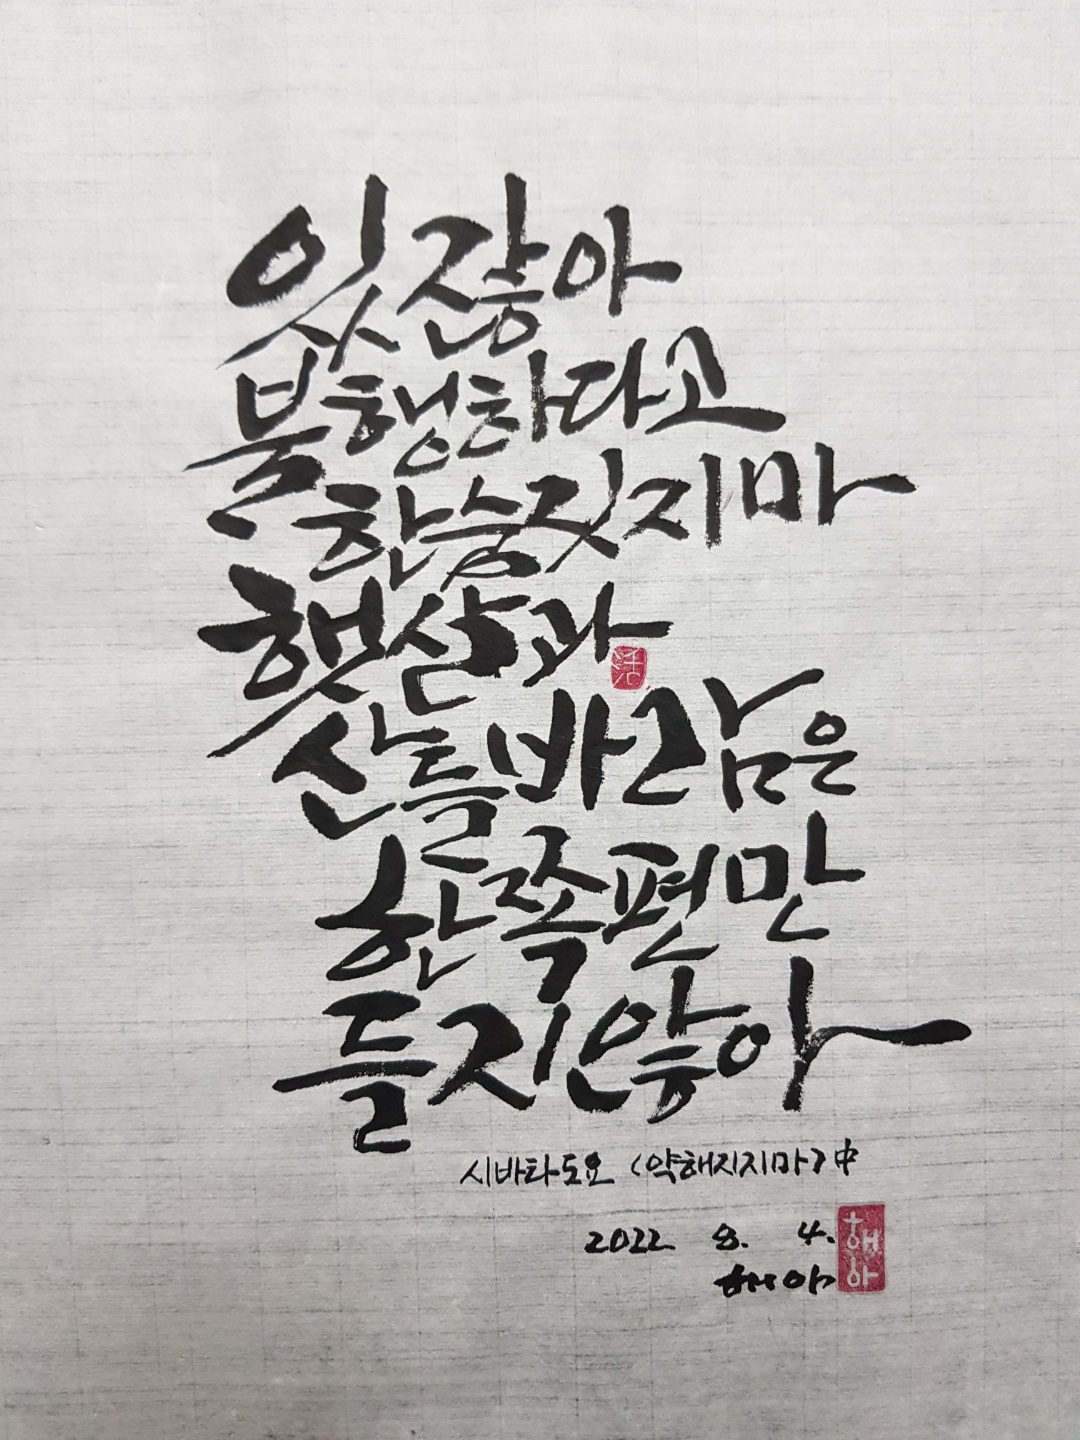 있잖아
불행하다고
한숨짓지마
햇살과
산들바람은
한쪽편만
들지않아
시바타도요 <약해지지마> 中
2022 8. 4.